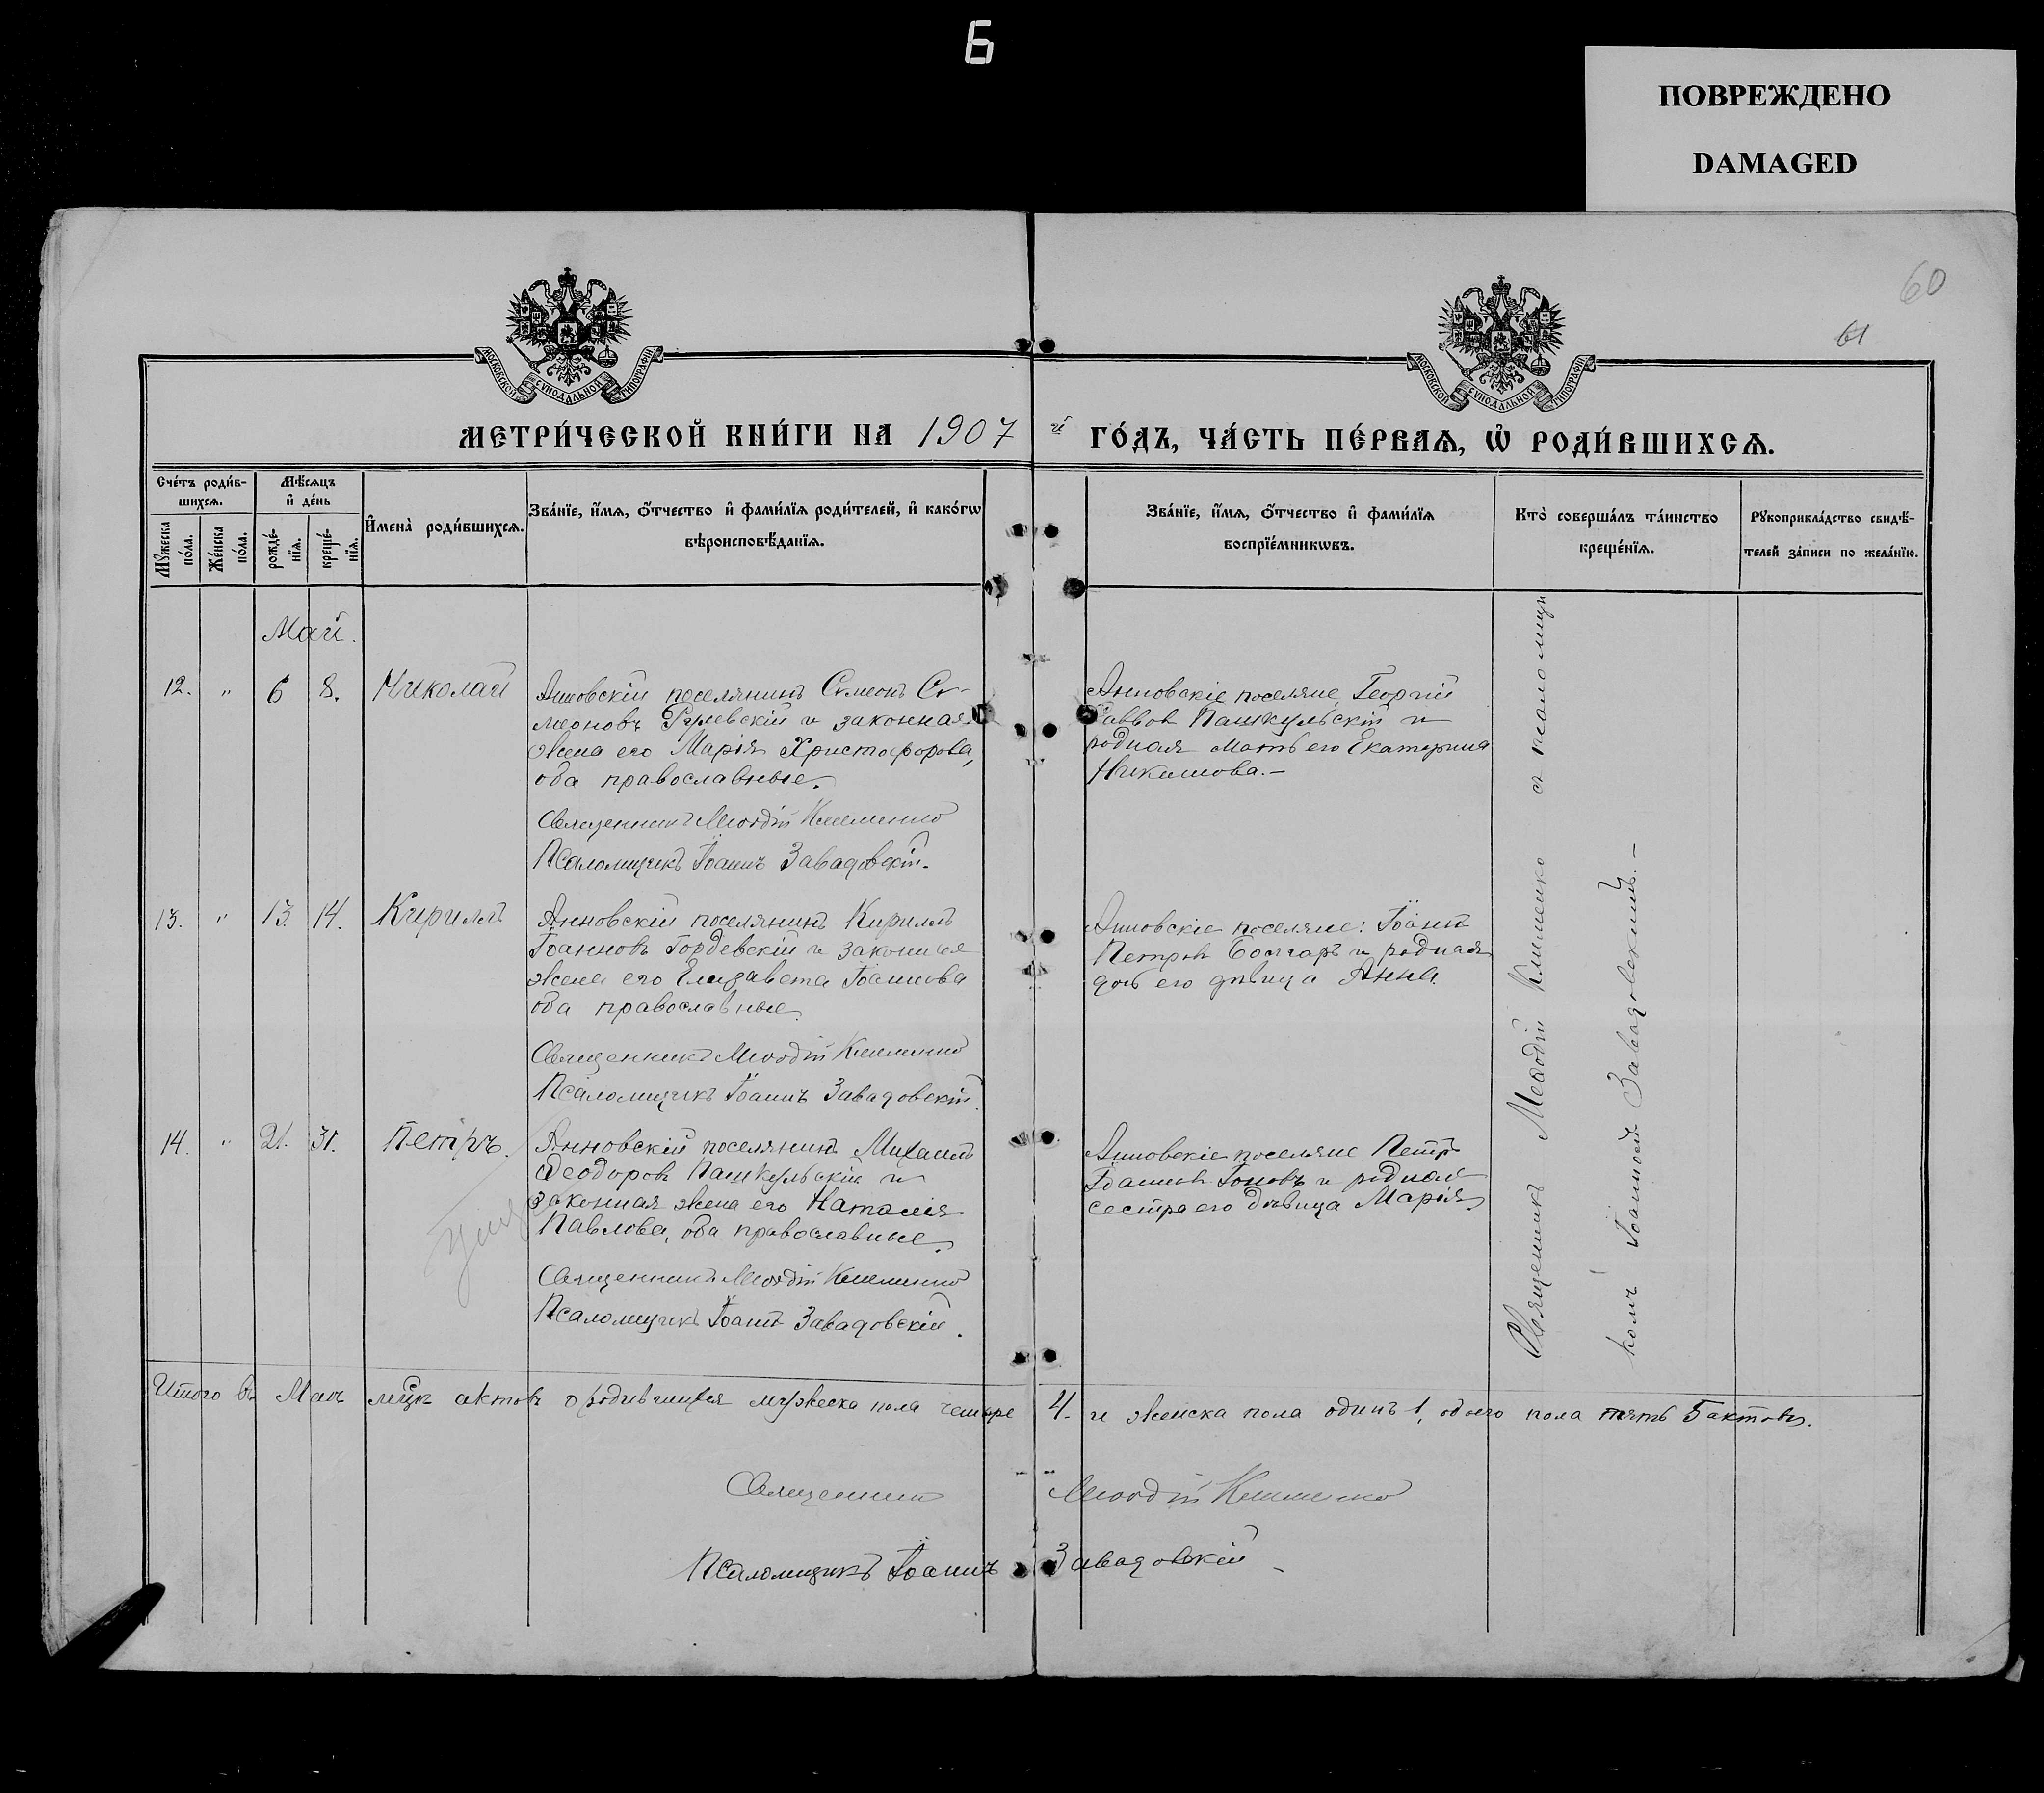 Б
ПОВРЕЖДЕНО
DAMAGED
60
61
МОСКОВСКОЙ СѴНОДАЛЬНОЙ ТИПОГРАФІИ
МОСКОВСКОЙ СѴНОДАЛЬНОЙ ТИПОГРАФІИ
МЕТРИ́ЧЕСКОЙ КНИ́ГИ НА 1907 й ГО́ДЪ, ЧА́СТЬ ПЕ́РВАѦ, Ѽ РОДИ́ВШИХСѦ.
Сче́тъ роди́в-
шихсѧ.
Мꙋ́жеска по́ла.
Же́нска по́ла.
Мѣ́сѧцъ
и҆ де́нь
рожде́-
нїѧ.
креще́-
нїѧ.
И҆мена̀ роди́вшихсѧ.
Зва́нїе, и҆́мѧ, ѻ҆́тчество и҆ фами́лїѧ роди́телей, и҆ како́гѡ
вѣроисповѣ́данїѧ.
Зва́нїе, и҆́мѧ, ѻ҆́тчество и҆ фами́лїѧ
воспрїе́мникѡвъ.
Кто̀ соверша́лъ та́инство
креще́нїѧ.
Рꙋкоприкла́дство свидѣ́-
телей за́писи по жела́нїю.
Май.
12. " 6 8. Николай
Анновскій поселянинъ Симеонъ Си-
меоновъ и законная
жена его Марія Христофорова,
оба православные.
Священникъ Меѳодій Клименко
Псаломщикъ Іоаннъ Завадовскій.
Анновскіе поселяне, Георгій
Саввовъ Пашкульскій и
родная мать его Екатерина
13. " 13. 14. Кириллъ
Анновскій поселянинъ Кириллъ
Іоанновъ Гордевскій и законная
жена его Елизавета Іоаннова
оба православные.
Священникъ Меѳодій Клименко
Псаломщикъ Іоаннъ Завадовскій.
Анновскіе поселяне: Іоаннъ
Петровъ Болгаръ и родная
дочь его дѣвица Анна.
14. " 21. 31. Петръ.
Анновскій поселянинъ Михаилъ
Ѳеодоровъ Пашкульскій и
законная жена его Наталія
Павлова, оба православные.
Священникъ Меѳодій Клименко
Псаломщикъ Іоаннъ Завадовскій.
Анновскіе поселяне Петръ
Іоанновъ Іоновъ и родная
сестра его дѣвица Марія.
Священникъ Меѳодій Клименко съ псаломщи
комъ Іоанномъ Завадовскимъ.
Итого въ Маѣ мцѣ актовъ о родившихся мужеска пола четыре 4. и женска пола одинъ 1, обоего пола пять 5 актовъ.
Священникъ Меѳодій Клименко
Псаломщикъ Іоаннъ Завадовскій